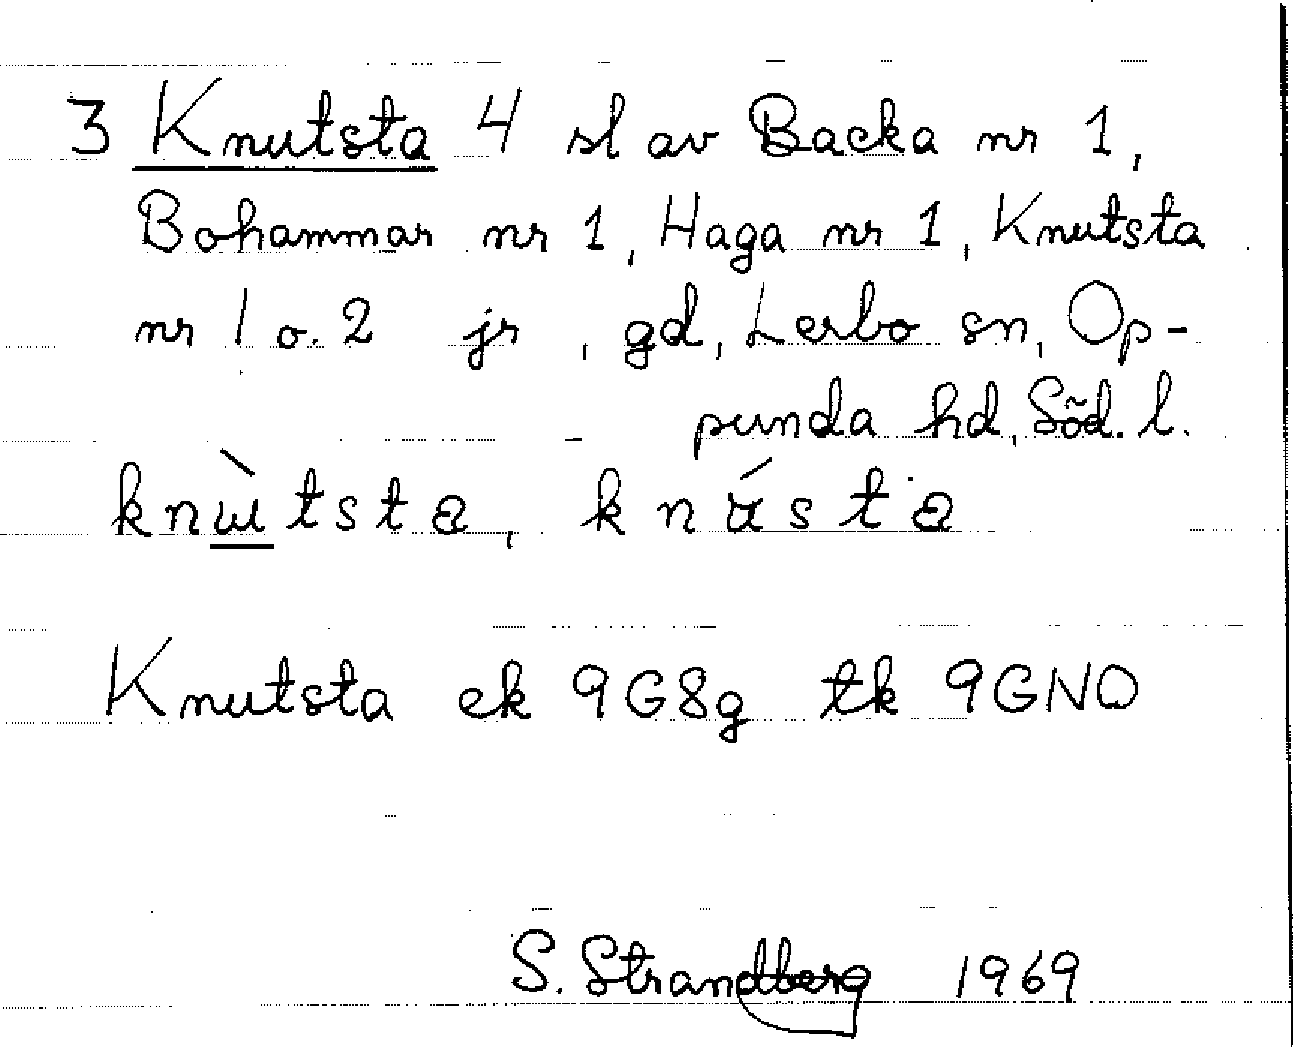 3 Knutsta 4 sl av Backa nr 1,
Bohammar nr 1, Haga nr 1, Knutsta
nr 1 o. 2 jr, gd, Lerbo sn, Op-
punda hd, Söd. l.
Knutsta ek 9G8g tk 9GNO
S. Strandberg 1969